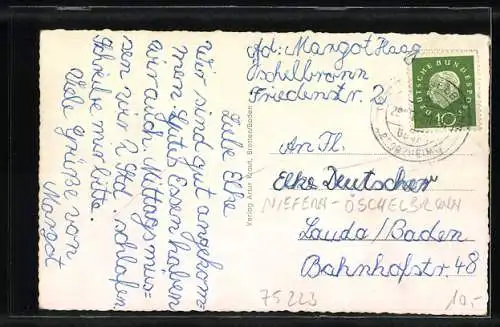 Liebe Elke
Wir sind gut angekom-
men. Gutes Essen haben
wir auch. Mittags müs-
sen wir 2 Std. schlafen.
Schreibe mir bitte.
Viele grüße von
Margot
Verlag Artur Kraut, Bretten/Baden
Ad: Margot Haag
Öschelbronn
Friedenstr. 2
DEUTSCHE BUNDESPOST
10
An Frl.
Elke Deutscher
NIEFERN-ÖSCHELBRONN
Lauda/Baden
Bahnhofstr. 48
75223
10,-